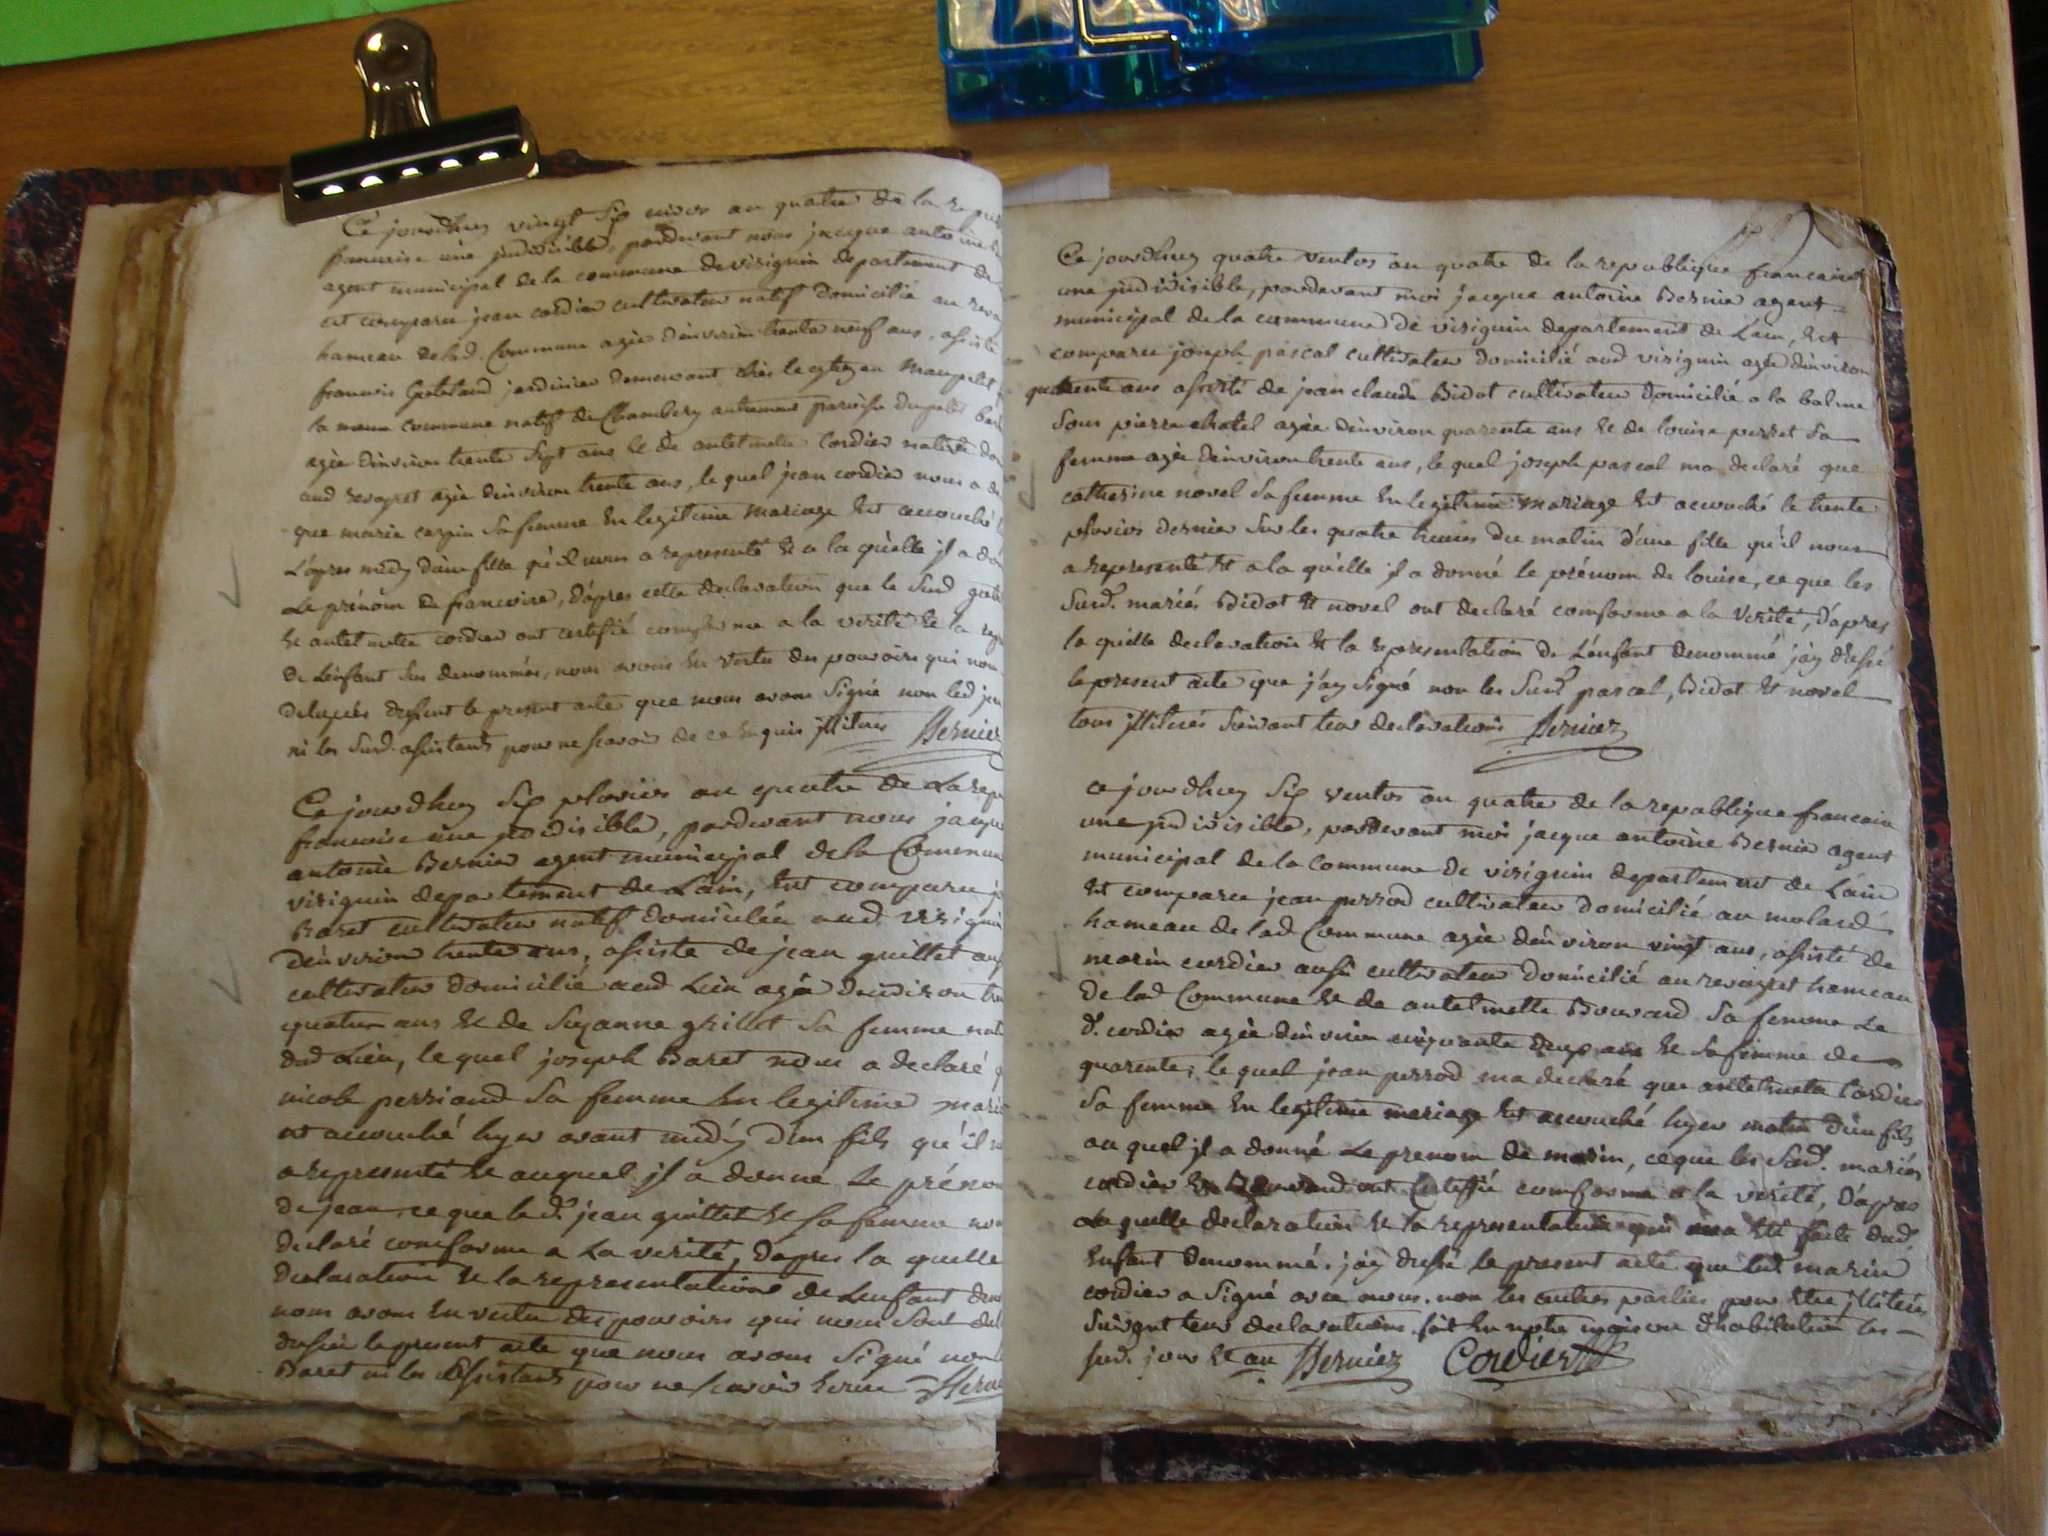 Ce jourdhuy vingt six nivos an quatre de la repu
francoise une jndivisible, pardevant nous jacque antoine
agent municipal de la commune de virignin departement de
est comparu jean cordier cultivateur natif domicilié au
hameau de lad. Commune agée denviron trente neuf ans, asisté
francois jardinier demeurant chés le citoyen
la meme commune natif de Chambery
agée denviron trente sept ans et de antelmette cordier native
aud agée denviron trente ans, le quel jean cordier nous a
que marie carrin sa femme en legitime mariage est accouché
L'apres midy d'une fille qu'il nous a representé et a la qu'elle jl a
Le prénom de francoise, d'apres cette declaration que le Surd
et antelmette cordier ont certifié conforme a la verité et la
de L'enfant sus denommés, nous avons en vertu des pouvoirs qui nous
delegués dressé le present acte que nous avons Signé non led
ni les surd. asistants pour ne scavoir de ce enquis jllitérés Bernier
Ce jourdhuy six pluvios an quatre de La repu
francoise une jndivisible, pardevant nous jacque
antoine Bernier agent municipal de la Commune
virignin departement de L'ain, est comparu
Baret cultivateur natif domicilée aud virignin
d'environ trente ans, asisté de jean guillet
cultivateur domicilié aud Lieu agée denviron
quatre ans et de Suzanne grillet sa femme
dud Lieu, le quel joseph Baret nous a declaré
nicole perriand sa femme en legitime
est accouché hyer avant midy d'un fils qu'il
a representé et auquel jl a donné Le préno
de jean, ce que led. jean guillet et sa femme
declaré conforme a La verité, d'apres la quelle
declaration et la representation de L'enfant
nous avons en vertu des pouvoirs qui nous Sont
dressé le present acte que nous avons Signé non
Baret ni les asistants pour ne scavoir ecrire
Ce jourdhuy quatre ventos an quatre de la republique francaise
une jndivisible, pardevant moi jacque antoine Bernier agent
municipal de la commune de virignin departement de L'ain, est
comparu joseph pascal cultivateur domicilié aud virignin agée denviron
quarente ans asisté de jean claude Bidot cultivateur domicilié a la balme
sous pierre chatel agée denviron quarente ans et de louise perret sa
femme agée denviron trente ans, le quel joseph pascal ma declaré que
catherine novel sa femme en legitime mariage est accouché le trente
pluvios dernier sur les quatre heures du matin d'une fille qu'il nous
a representé et a la qu'elle jl a donné le prénom de louise, ce que les
Surd. mariés Bidot et novel ont declaré conforme a la verité, d'apres
la qu'elle declaration et la representation de L'enfant denommé j'ay dressé
le present acte que j'ay signé non les Surd. pascal, Bidot et novel
tous jllitérés Suivant leur declarations Bernier
ce jourdhuy six ventos an quatre de la republique francaise
une jndivisible, pardevant moi jacque antoine Bernier agent
municipal de la commune de virignin departement de L'ain
est comparu jean perrod cultivateur domicilié au molard
hameau de lad Commune agée denviron vingt ans, asisté de
marin cordier aussi cultivateur domicilié au hameau
de lad Commune et de antelmette Bouvard sa femme Le
d. cordier agée denviron cinquante deux ans et sa femme de
quarente, le quel jean perrod ma declaré que antelmette Cordier
sa femme en legitime mariage est accouché hyer matin d'un fils
au quel jl a donné Le prenom de marin, ce que les Surd. mariés
cordier et Bouvard ont certifié conforme a la verité, d'apres
La quelle declaration et la representation qui ma été faite dud.
Enfant denommé, j'ay dressé le present acte que led marin
cordier a signé avec nous, non les autres parties pour être jllitérés
Suivant leur declarations, fait en notre maison d'habitation les
surd. jour et an Bernier Cordier